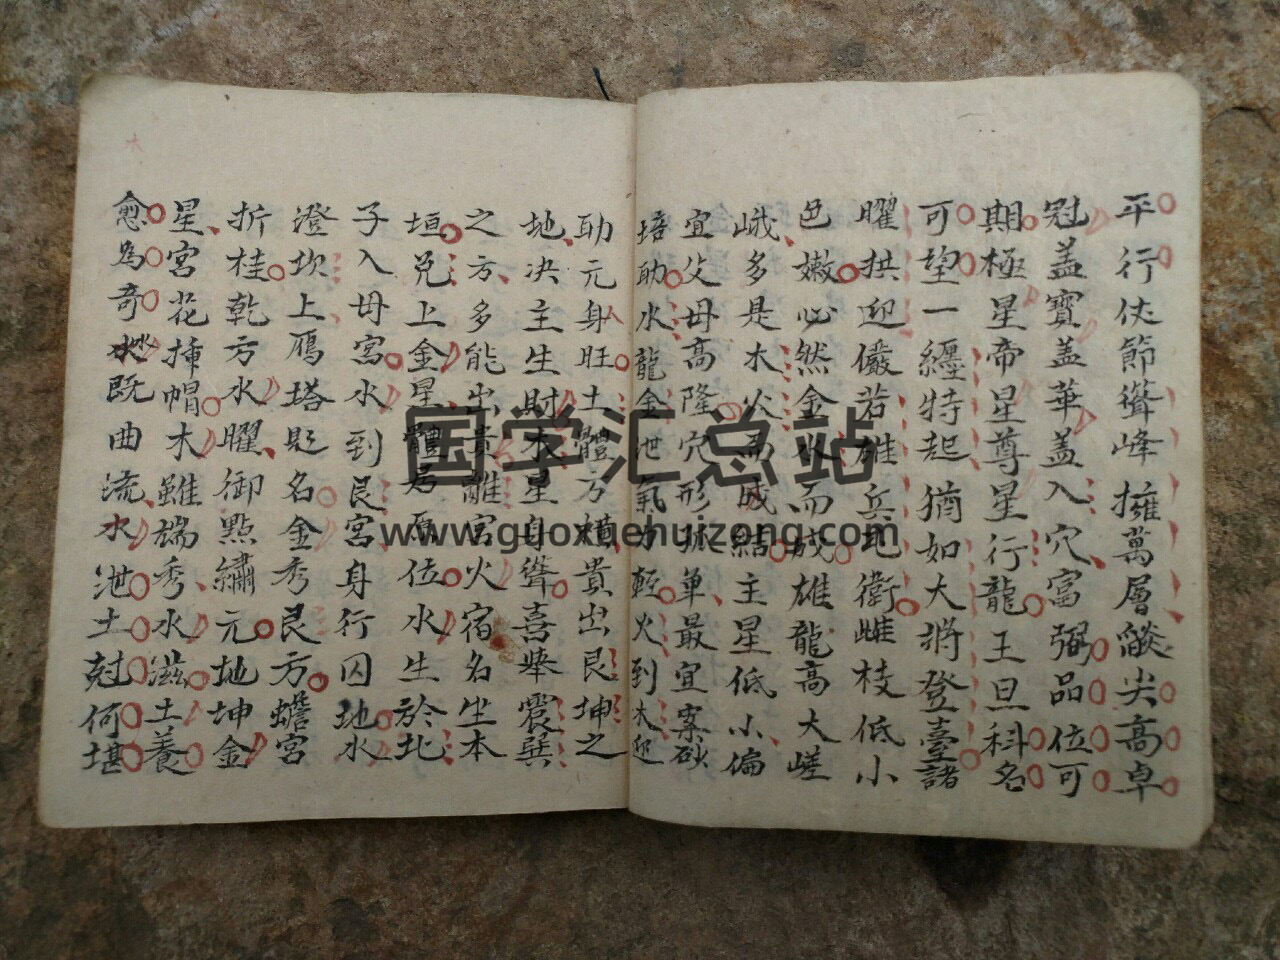 平行仗節聳峰擁萬層燄尖高卓
冠盖寶盖華盖入穴富弼品位可
期極星帝星尊星行龍王旦科名
可望一纒特起猶如大將登臺諸
曜拱迎儼若雄兵地衛雌枝低小
色嫩必然金水而成雄龍高大嵯
峨多是木火而成結主星低小偏
宜父母高隆穴形孤單最宜案砂
培助水龍金泄氣力輕火到木迎
助元身旺土體方横貴出艮坤之
地决主生財木星身聳喜舉震巽
之方多能出貴離宮火宿名坐本
垣兑上金星體居原位水生於北
子入母宮水到艮宮身行囚地水
澄坎上雁塔題名金秀艮方蟾宮
折桂乾方水曜御點繡元地坤金
星宮花揷帽木雖端秀水滋土養
愈為奇妙既曲流水泄土尅何堪
国学汇总站
www.guoxuehuizong.com